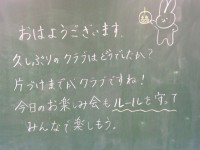 おはようございます。
久しぶりのクラブはどうでしたか？
片づけまでがクラブですね！
今日のお楽しみ会もルールを守って
みんなで楽しもう。